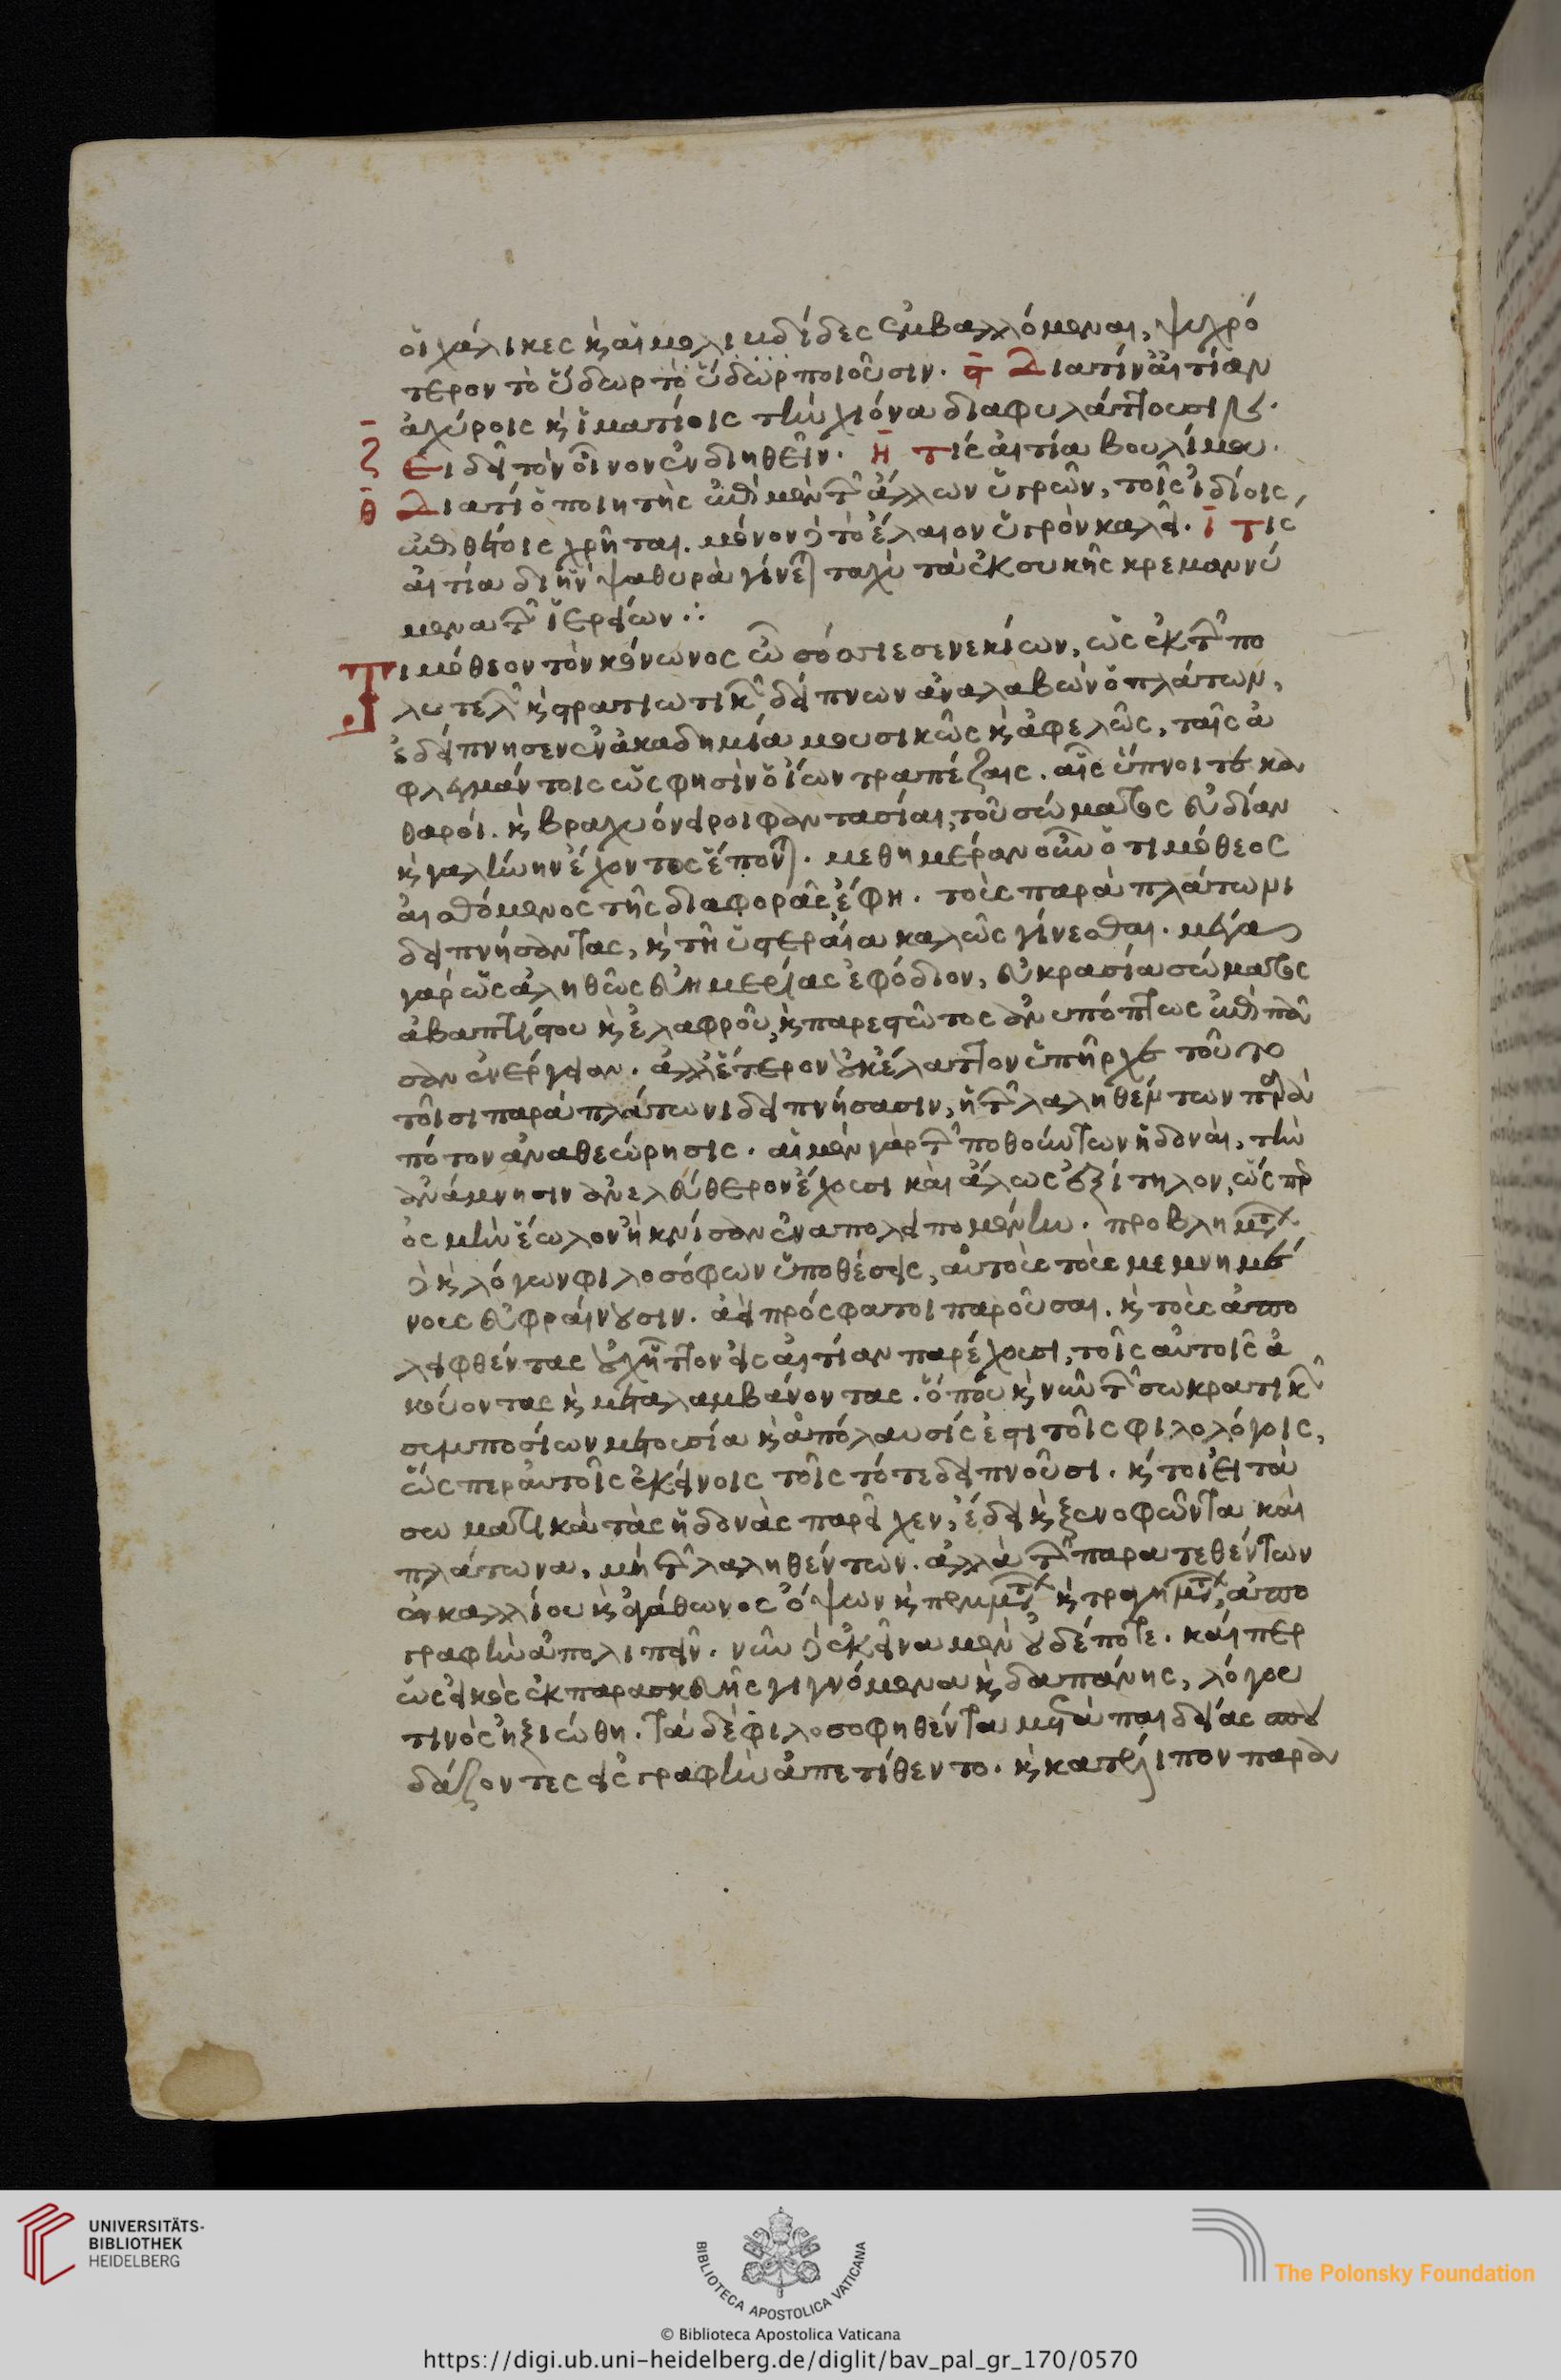 οἱ χάλικες καὶ αἱ μολιβδίδες ἐμβαλλόμεναι, ψυχρό
τερον τὸ ὕδωρ τὸ ὕδωρ ποιοῦσιν. ϛ Διὰ τίν' αἰτίαν
ἀχύροις καὶ ἱματίοις τὴν χιόνα διαφυλάττουσιν.
ζ Εἰ δεῖ τὸν οἶνον ἐνδιηθεῖν. η τίς αἰτία βουλίμου.
θ Διατί ὁ ποιητὴς ἐπὶ μὲν τῶν ἄλλων ὑγρῶν, τοῖς ἰδίοις
ἐπιθέτοις χρῆται. μόνον δὲ τὸ ἔλαιον ὑγρὸν καλεῖ. ι τίς
αἰτία δι' ἣν ψαθυρὰ γίνεται ταχὺ τὰ ἐκ συκῆς κρεμαννύ
μενα τῶν ἱερείων ∴
Τιμόθεον τὸν Κόνωνος ὦ σόσσιε σενεκίων, ὡς ἐκ τῶν πο
λυτελῶν καὶ στρατιωτικῶν δείπνων ἀναλαβὼν ὁ πλάτων,
ἐδείπνησεν ἐν ἀκαδημία μουσικῶς καὶ ἀφελῶς, ταῖς ἀ
φλεγμάντοις ὥς φησὶν ὁ ἴων τραπέζαις. αἷς ὕπνοι τε κα
θαροί. καὶ βραχυόνειροι φαντασίαι, τοῦ σώματος εὐδίαν
καὶ γαλήνην ἔχοντος ἕπονται. μεθημέραν οὖν ὁ τιμόθεος
αἰσθόμενος τῆς διαφορᾶς, ἔφη. τοὺς παρὰ πλάτωνι
δειπνήσαντας, καὶ τῇ ὑστεραία καλῶς γίνεσθαι. μέγα
γὰρ ὡς ἀληθῶς εὐημερίας ἐφόδιον, εὐκρασία σώματος
ἀβαπτίστου καὶ ἐλαφροῦ, καὶ παρεστῶτος ἀνυπόπτως ἐπὶ πᾶ
σαν ἐνέργειαν. ἀλλ' ἕτερον οὐκ ἔλαττον ὑπῆρχε τοῦτο
τοῖσι παρὰ πλάτωνι δειπνήσασιν, ἡ τῶν λαληθέντων παρὰ
πότον ἀναθεώρησις. αἱ μὲν γὰρ τῶν ποθέντων ἡδοναὶ, τὴν
ἀνάμνησιν ἀνελεύθερον ἔχουσι καὶ ἄλλως ἐξίτηλον, ὥσπερ
ὀσμὴν ἕωλον ἢ κνίσαν ἐναπολειπομένην. προβλημάτων
δὲ καὶ λόγων φιλοσόφων ὑποθέσεις, αὐτοὺς τοὺς μεμνημέ
νους εὐφραίνουσιν. ἀεὶ πρόσφατοι παροῦσαι. καὶ τοὺς ἀπο
λειφθέντας οὐχ ἧττον εἰς αἰτίαν παρέχουσι, τοῖς αὐτοῖς ἀ
κούοντας καὶ μεταλαμβάνοντας. ὅπου καὶ νῦν τῶν σωκρατικῶν
συμποσίων μετουσία καὶ ἀπόλαυσίς ἐστι τοῖς φιλολόγοις,
ὥσπερ αὐτοῖς ἐκείνοις τοῖς τότε δειπνοῦσι. καίτοι εἰ τὰ
σωματικὰ τὰς ἡδονὰς παρεῖχεν, ἔδει καὶ ξενοφῶντα καὶ
πλάτωνα, μὴ τῶν λαληθέντων. ἀλλὰ τῶν παρατεθέντων
ἐν καλλίου καὶ ἀγάθωνος ὄψων καὶ πεμμάτων καὶ τραγημάτων, ἀπο
γραφὴν ἀπολιπεῖν. νῦν δὲ ἐκεῖνα μὲν οὐδέποτε. καίπερ
ὡς εἰκὸς ἐκ παρασκευῆς γιγνόμενα καὶ δαπάνης, λόγου
τινὸς ἠξιώθη. τὰ δὲ φιλοσοφηθέντα μετὰ παιδείας σπου
δάζοντες εἰς γραφὴν ἀπετίθεντο. καὶ κατέλιπον παρα
UNIVERSITÄTS-
BIBLIOTHEK
HEIDELBERG
BIBLIOTECA APOSTOLICA VATICANA
The Polonsky Foundation
© Biblioteca Apostolica Vaticana
https://digi.ub.uni-heidelberg.de/diglit/bav_pal_gr_170/0570